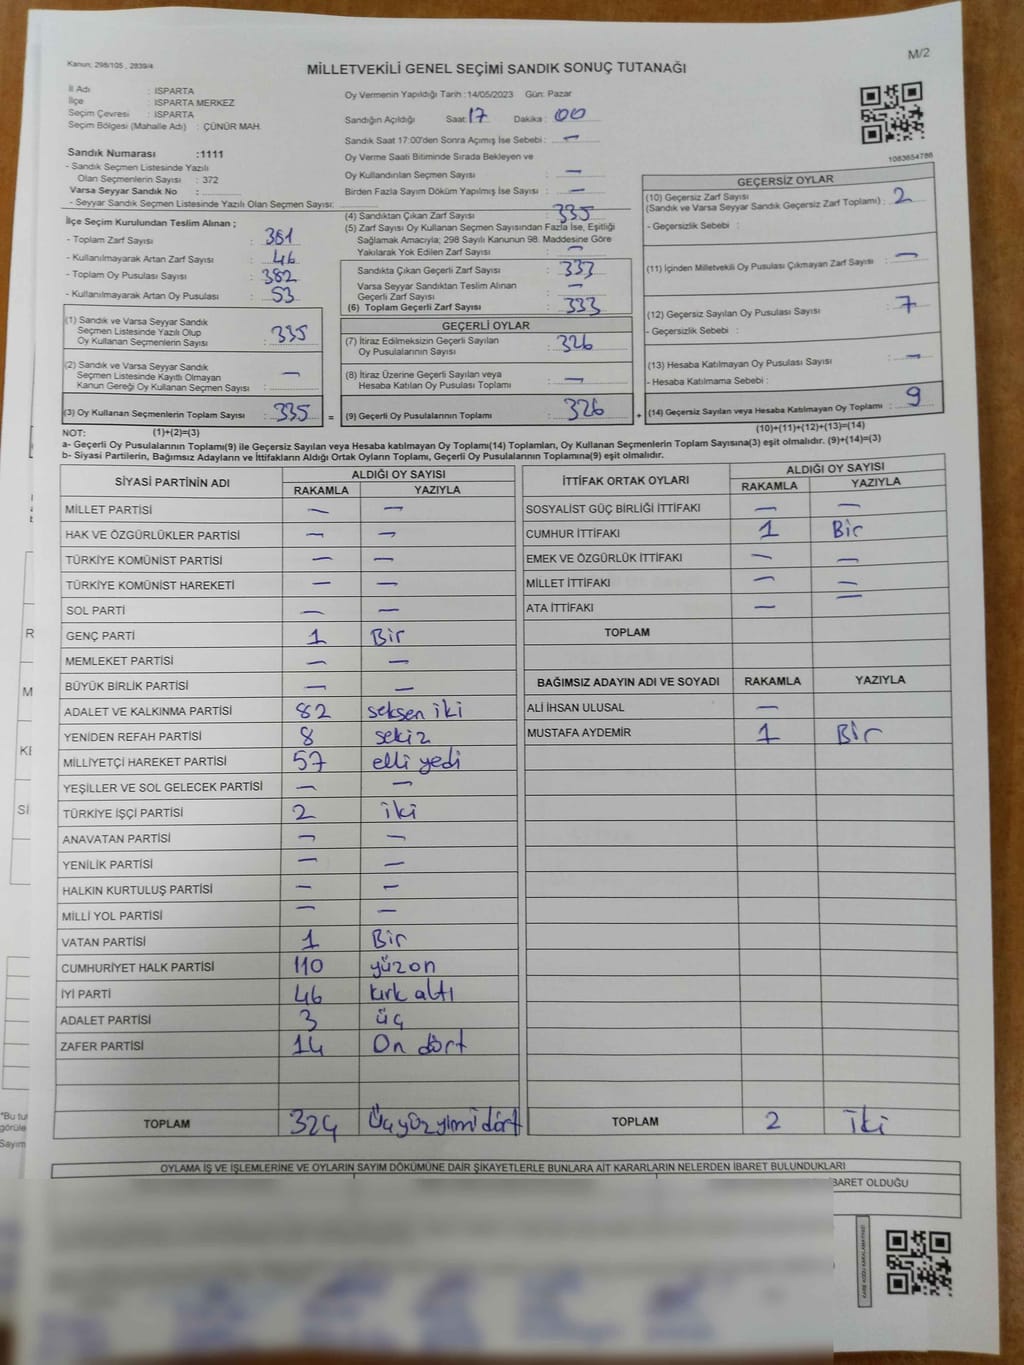 Kanun; 298/105 , 2839/4
M/2
MİLLETVEKİLİ GENEL SEÇİMİ SANDIK SONUÇ TUTANAĞI
İl Adı : ISPARTA
İlçe : ISPARTA MERKEZ
Seçim Çevresi : ISPARTA
Seçim Bölgesi (Mahalle Adı) : ÇÜNÜR MAH.
Sandık Numarası :1111
- Sandık Seçmen Listesinde Yazılı
Olan Seçmenlerin Sayısı : 372
Varsa Seyyar Sandık No :
- Seyyar Sandık Seçmen Listesinde Yazılı Olan Seçmen Sayısı:
Oy Vermenin Yapıldığı Tarih :14/05/2023 Gün: Pazar
Sandığın Açıldığı Saat 17 Dakika : 00
Sandık Saat 17:00'den Sonra Açımış İse Sebebi : —
Oy Verme Saati Bitiminde Sırada Bekleyen ve
Oy Kullandırılan Seçmen Sayısı : —
Birden Fazla Sayım Döküm Yapılmış İse Sayısı : —
1083654786
İlçe Seçim Kurulundan Teslim Alınan ;
- Toplam Zarf Sayısı : 381
- Kullanılmayarak Artan Zarf Sayısı : 46
- Toplam Oy Pusulası Sayısı : 382
- Kullanılmayarak Artan Oy Pusulası : 53
(1) Sandık ve Varsa Seyyar Sandık
Seçmen Listesinde Yazılı Olup
Oy Kullanan Seçmenlerin Sayısı : 335
(2) Sandık ve Varsa Seyyar Sandık
Seçmen Listesinde Kayıtlı Olmayan
Kanun Gereği Oy Kullanan Seçmen Sayısı : —
(3) Oy Kullanan Seçmenlerin Toplam Sayısı : 335 =
(4) Sandıktan Çıkan Zarf Sayısı : 335
(5) Zarf Sayısı Oy Kullanan Seçmen Sayısından Fazla İse, Eşitliği
Sağlamak Amacıyla; 298 Sayılı Kanunun 98. Maddesine Göre
Yakılarak Yok Edilen Zarf Sayısı : —
Sandıkta Çıkan Geçerli Zarf Sayısı : 333
Varsa Seyyar Sandıktan Teslim Alınan
Geçerli Zarf Sayısı : —
(6) Toplam Geçerli Zarf Sayısı : 333
GEÇERLİ OYLAR
(7) İtiraz Edilmeksizin Geçerli Sayılan
Oy Pusulalarının Sayısı : 326
(8) İtiraz Üzerine Geçerli Sayılan veya
Hesaba Katılan Oy Pusulası Toplamı : —
(9) Geçerli Oy Pusulalarının Toplamı : 326 +
GEÇERSİZ OYLAR
(10) Geçersiz Zarf Sayısı
(Sandık ve Varsa Seyyar Sandık Geçersiz Zarf Toplamı) : 2
- Geçersizlik Sebebi :
(11) İçinden Milletvekili Oy Pusulası Çıkmayan Zarf Sayısı : —
(12) Geçersiz Sayılan Oy Pusulası Sayısı : 7
- Geçersizlik Sebebi :
(13) Hesaba Katılmayan Oy Pusulası Sayısı : —
- Hesaba Katılmama Sebebi :
(14) Geçersiz Sayılan veya Hesaba Katılmayan Oy Toplamı : 9
NOT: (1)+(2)=(3) (10)+(11)+(12)+(13)=(14)
a- Geçerli Oy Pusulalarının Toplamı(9) ile Geçersiz Sayılan veya Hesaba katılmayan Oy Toplamı(14) Toplamları, Oy Kullanan Seçmenlerin Toplam Sayısına(3) eşit olmalıdır. (9)+(14)=(3)
b- Siyasi Partilerin, Bağımsız Adayların ve İttifakların Aldığı Ortak Oyların Toplamı, Geçerli Oy Pusulalarının Toplamına(9) eşit olmalıdır.
SİYASİ PARTİNİN ADI ALDIĞI OY SAYISI
RAKAMLA YAZIYLA
MİLLET PARTİSİ — —
HAK VE ÖZGÜRLÜKLER PARTİSİ — —
TÜRKİYE KOMÜNİST PARTİSİ — —
TÜRKİYE KOMÜNİST HAREKETİ — —
SOL PARTİ — —
GENÇ PARTİ 1 Bir
MEMLEKET PARTİSİ — —
BÜYÜK BİRLİK PARTİSİ — —
ADALET VE KALKINMA PARTİSİ 82 seksen iki
YENİDEN REFAH PARTİSİ 8 sekiz
MİLLİYETÇİ HAREKET PARTİSİ 57 elli yedi
YEŞİLLER VE SOL GELECEK PARTİSİ — —
TÜRKİYE İŞÇİ PARTİSİ 2 iki
ANAVATAN PARTİSİ — —
YENİLİK PARTİSİ — —
HALKIN KURTULUŞ PARTİSİ — —
MİLLİ YOL PARTİSİ — —
VATAN PARTİSİ 1 Bir
CUMHURİYET HALK PARTİSİ 110 yüzon
İYİ PARTİ 46 kırk altı
ADALET PARTİSİ 3 üç
ZAFER PARTİSİ 14 On dört
TOPLAM 324 Üçyüzyirmi dört
İTTİFAK ORTAK OYLARI ALDIĞI OY SAYISI
RAKAMLA YAZIYLA
SOSYALİST GÜÇ BİRLİĞİ İTTİFAKI — —
CUMHUR İTTİFAKI 1 Bir
EMEK VE ÖZGÜRLÜK İTTİFAKI — —
MİLLET İTTİFAKI — —
ATA İTTİFAKI — —
TOPLAM
BAĞIMSIZ ADAYIN ADI VE SOYADI RAKAMLA YAZIYLA
ALİ İHSAN ULUSAL —
MUSTAFA AYDEMİR 1 Bir
TOPLAM 2 iki
OYLAMA İŞ VE İŞLEMLERİNE VE OYLARIN SAYIM DÖKÜMÜNE DAİR ŞİKAYETLERLE BUNLARA AİT KARARLARIN NELERDEN İBARET BULUNDUKLARI
BARET OLDUĞU